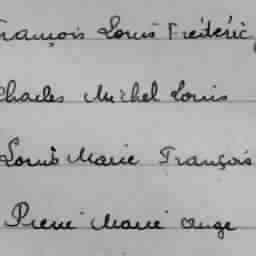 François Louis Fréderic
Charles Michel Louis
Louis Marie François
Pierre Marie Ange